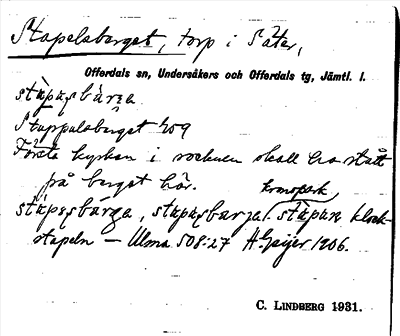 Stapelsberget, torp i Såter,
Offerdals sn, Undersåkers och Offerdals tg, Jämtl. l.
stápusbärga
Stappulsberget 1709
Första kyrkan i socknen skall ha stått
på berget här.
kronopark
stápusbärga, stapusbärjal. stápun klock-
stapeln – Ulma 508:27 H. Geijer 1906.
C. LINDBERG 1931.